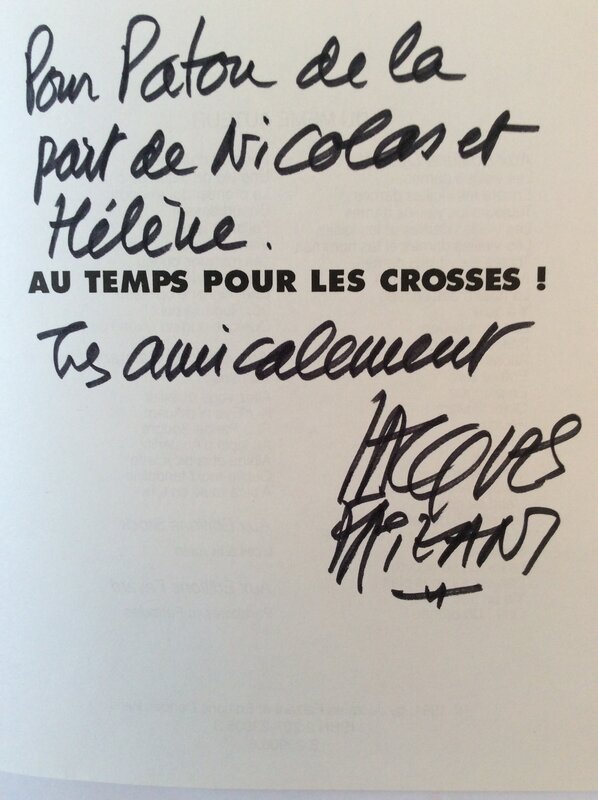 Pour Patou de la
part de Nicolas et
Hélène.
AU TEMPS POUR LES CROSSES !
Très amicalement
JACQUES
FAIZANT